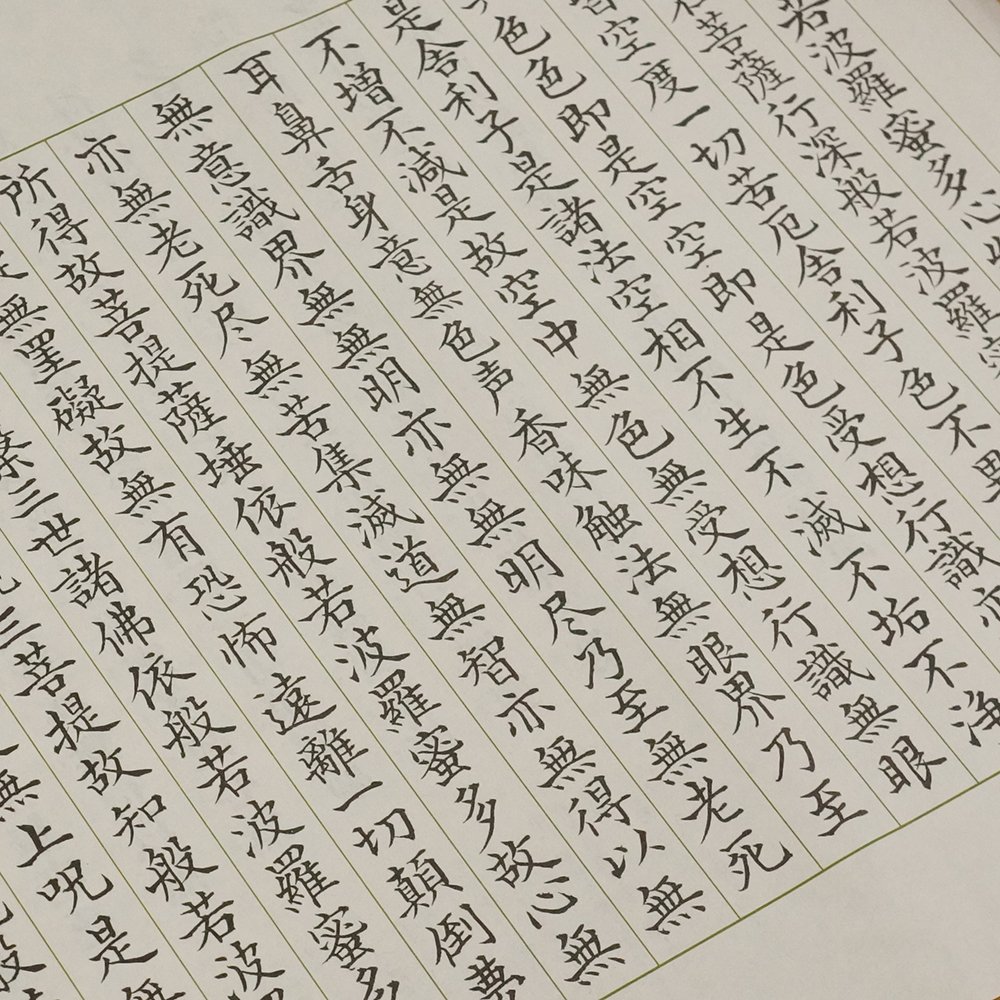 若波羅蜜多心
菩薩行深般若波羅蜜
皆空度一切苦厄舍利子色不異
色色即是空空即是色受想行識亦
是舍利子是諸法空相不生不滅不垢不浄
不増不減是故空中無色無受想行識無眼
耳鼻舌身意無色声香味触法無眼界乃至
無意識界無無明亦無無明尽乃至無老死
亦無老死尽無苦集滅道無智亦無得以無
所得故菩提薩埵依般若波羅蜜多故心無
無罣礙故無有恐怖遠離一切顛倒夢
槃三世諸佛依般若波羅蜜多
三菩提故知般若波
無上呪是無
般